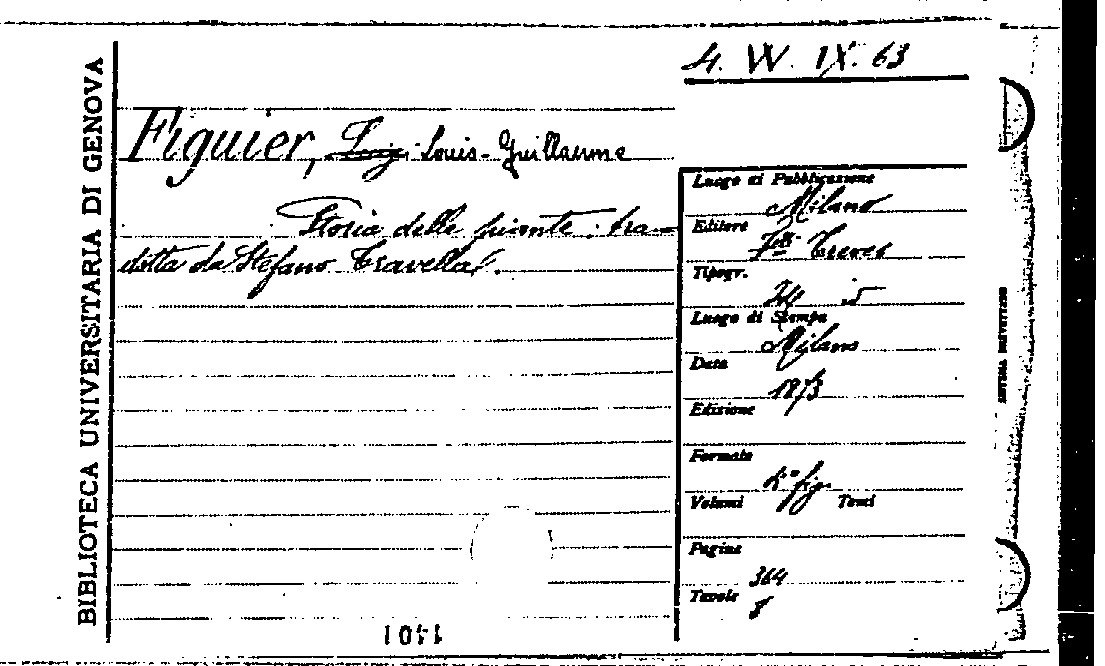 BIBLIOTECA UNIVERSITARIA DI GENOVA
4. W. IX. 63
Figuier, Luigi Louis-Guillaume
Storia delle piante: tra-
dotta da Stefano Travella.
Luogo di Pubblicazione
Milano
Editore
F.lli Treves
Tipogr.
id
Luogo di Stampa
Milano
Data
1873
Edizione
Formato
4° fig.
Volumi Tomi
Pagine
364
Tavole
1401